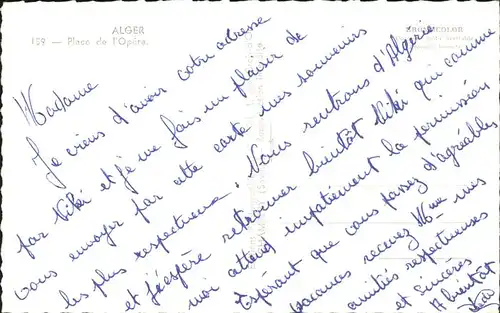 ALGER
159 — Place de l'Opéra.
Madame
Je viens d'avoir votre adresse
par Kiki et je me fais un plaisir de
vous envoyer par cette carte mes souvenirs
les plus respectueux. Nous rentrons d'Algérie
et j'espère retrouver bientôt Kiki qui comme
moi attend impatiemment la permission
Espérant que vous passez d'agréables
vacances recevez Mme mes
amitiés respectueuses
et sincères
A bientôt